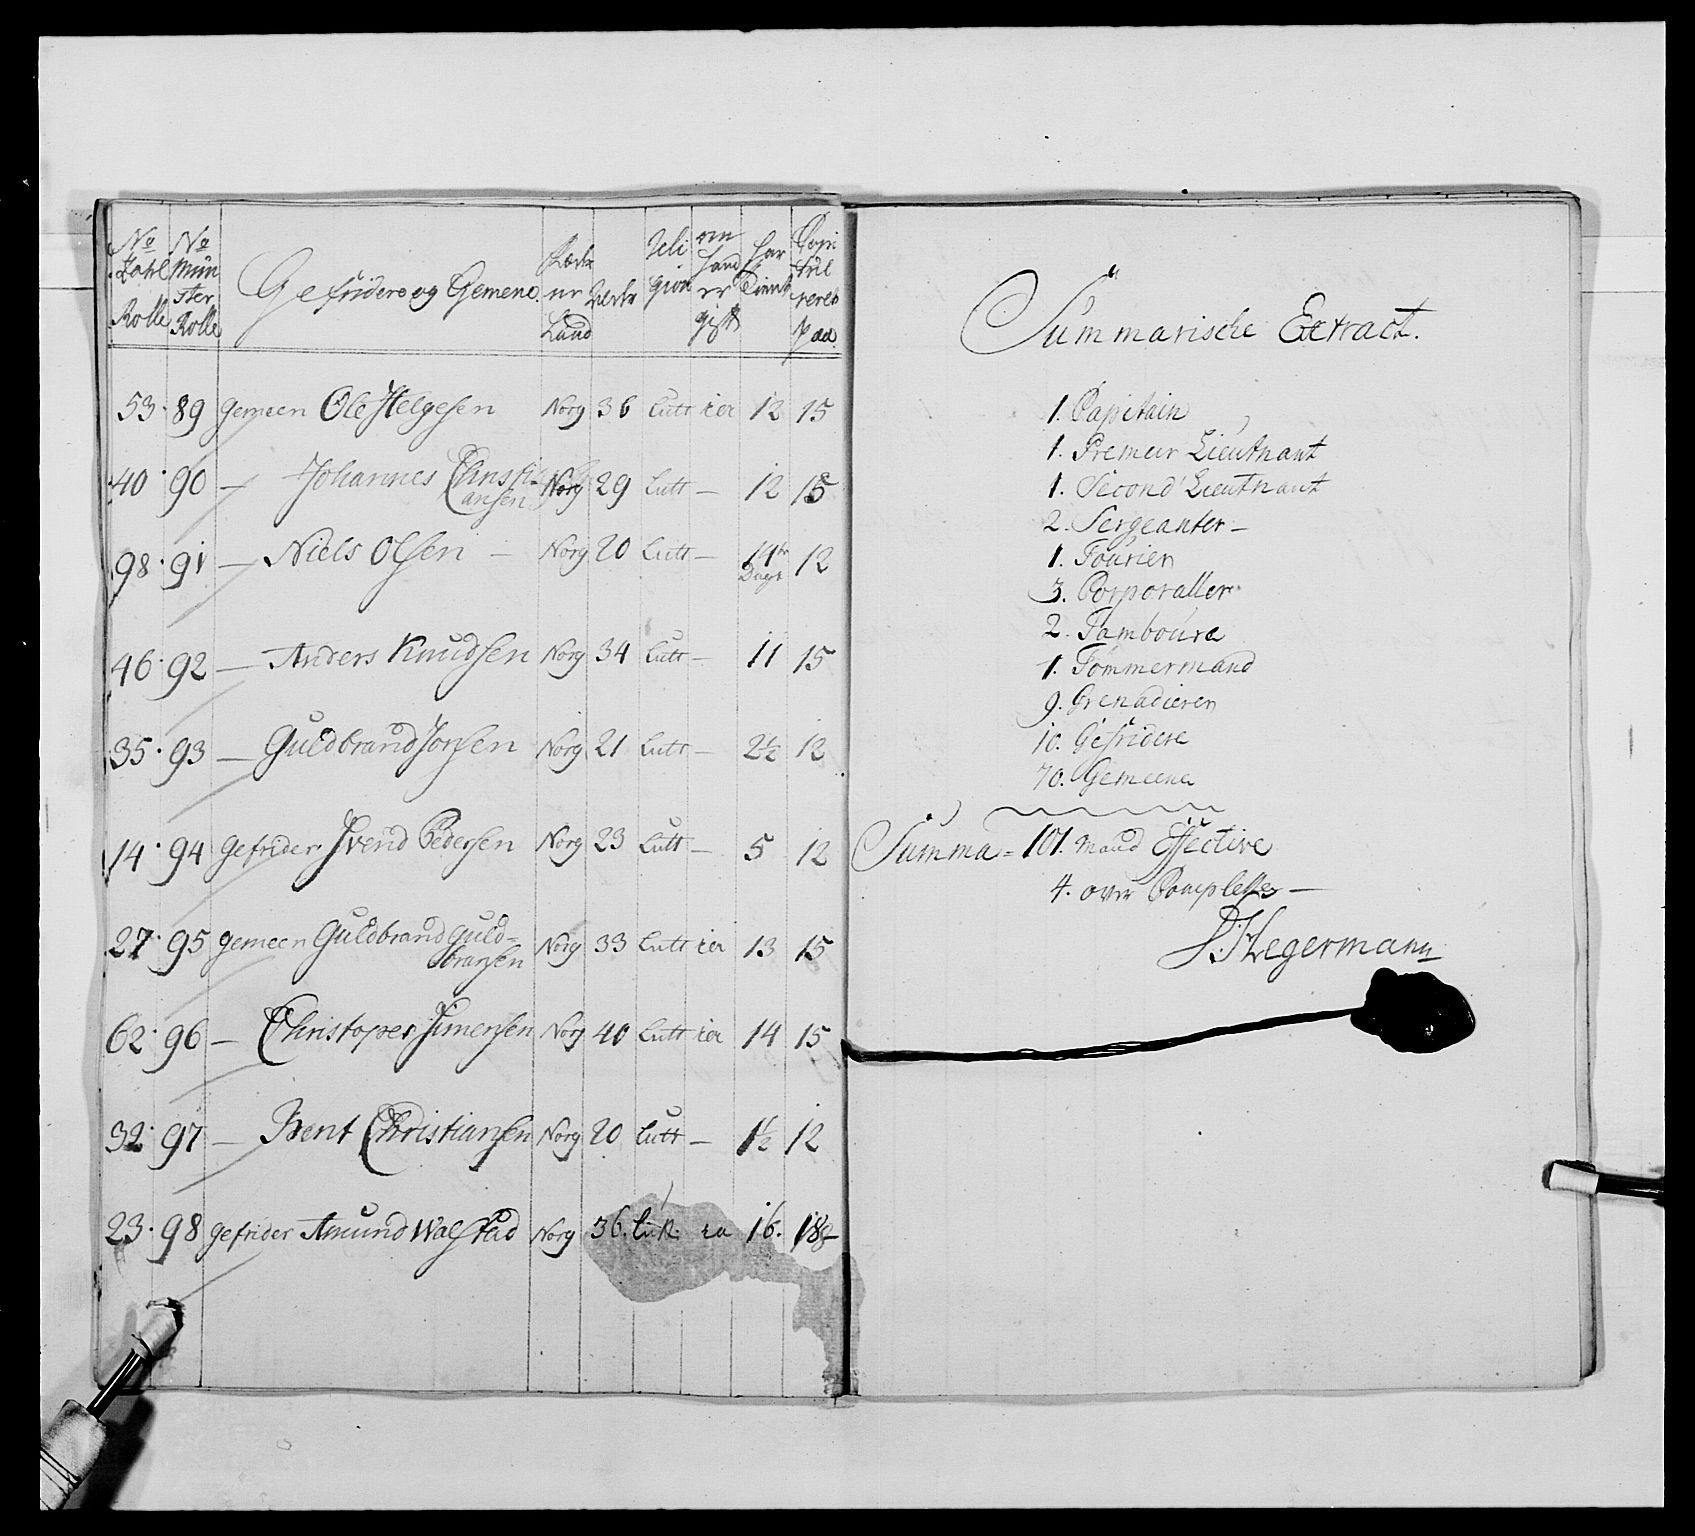 No Zahl Rolle | No Mün ster Rolle | Gefridere og Gemene | Land | Alder | Reli gion | om hand er gift | har tient | Capi tul leret paa
53 · 89 gemeen Ole Helgesen Norg 36 Lutt ia 12 15
40 · 90 — Johannes Christi- Norg 29 Lutt — 12 15
ansen
98 · 91 — Niels Olsen — Norg 20 Lutt — 14 12
Dage
46 · 92 — Anders Knudsen Norg 34 Lutt — 11 15
35 · 93 — Guldbrand Jonsen Norg 21 Lutt — 2½ 12
14 · 94 gefrider Svend Pedersen Norg 23 Lutt — 5 12
27 · 95 gemeen Guldbrand Guld- Norg 33 Lutt ia 13 15
bransen
62 · 96 — Christopes Simensen Norg 40 Lutt ia 14 15
32 · 97 — Bent Christiansen Norg 20 Lutt — 1½ 12
23 · 98 gefrider Amund Walstad Norg 36. Lutt. ia 16. 18
Summarische Extract.
1. Capitain
1. Premeir Lieutnant
1. Second Lieutnant
2. Sergeanter —
1. Fourier
3. Corporaller
2. Tamboure
1. Tömmermand
9. Grenadieren
10. Gefridere
70. Gemeene
Summa = 101. Mand Effective
4. over Complette —
Hegermann